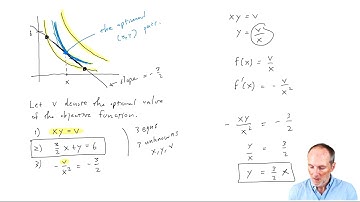 the optimal
(x,y) pair.
x
slope = - 3/2
Let v denote the optimal value
of the objective function.
1) xy = v
2) 3/2 x + y = 6
3) - v/x² = - 3/2
3 eqns
3 unknowns
x, y, v
xy = v
y = v/x
f(x) = v/x
f'(x) = - v/x²
- xy/x² = - 3/2
y/x = 3/2
y = 3/2 x